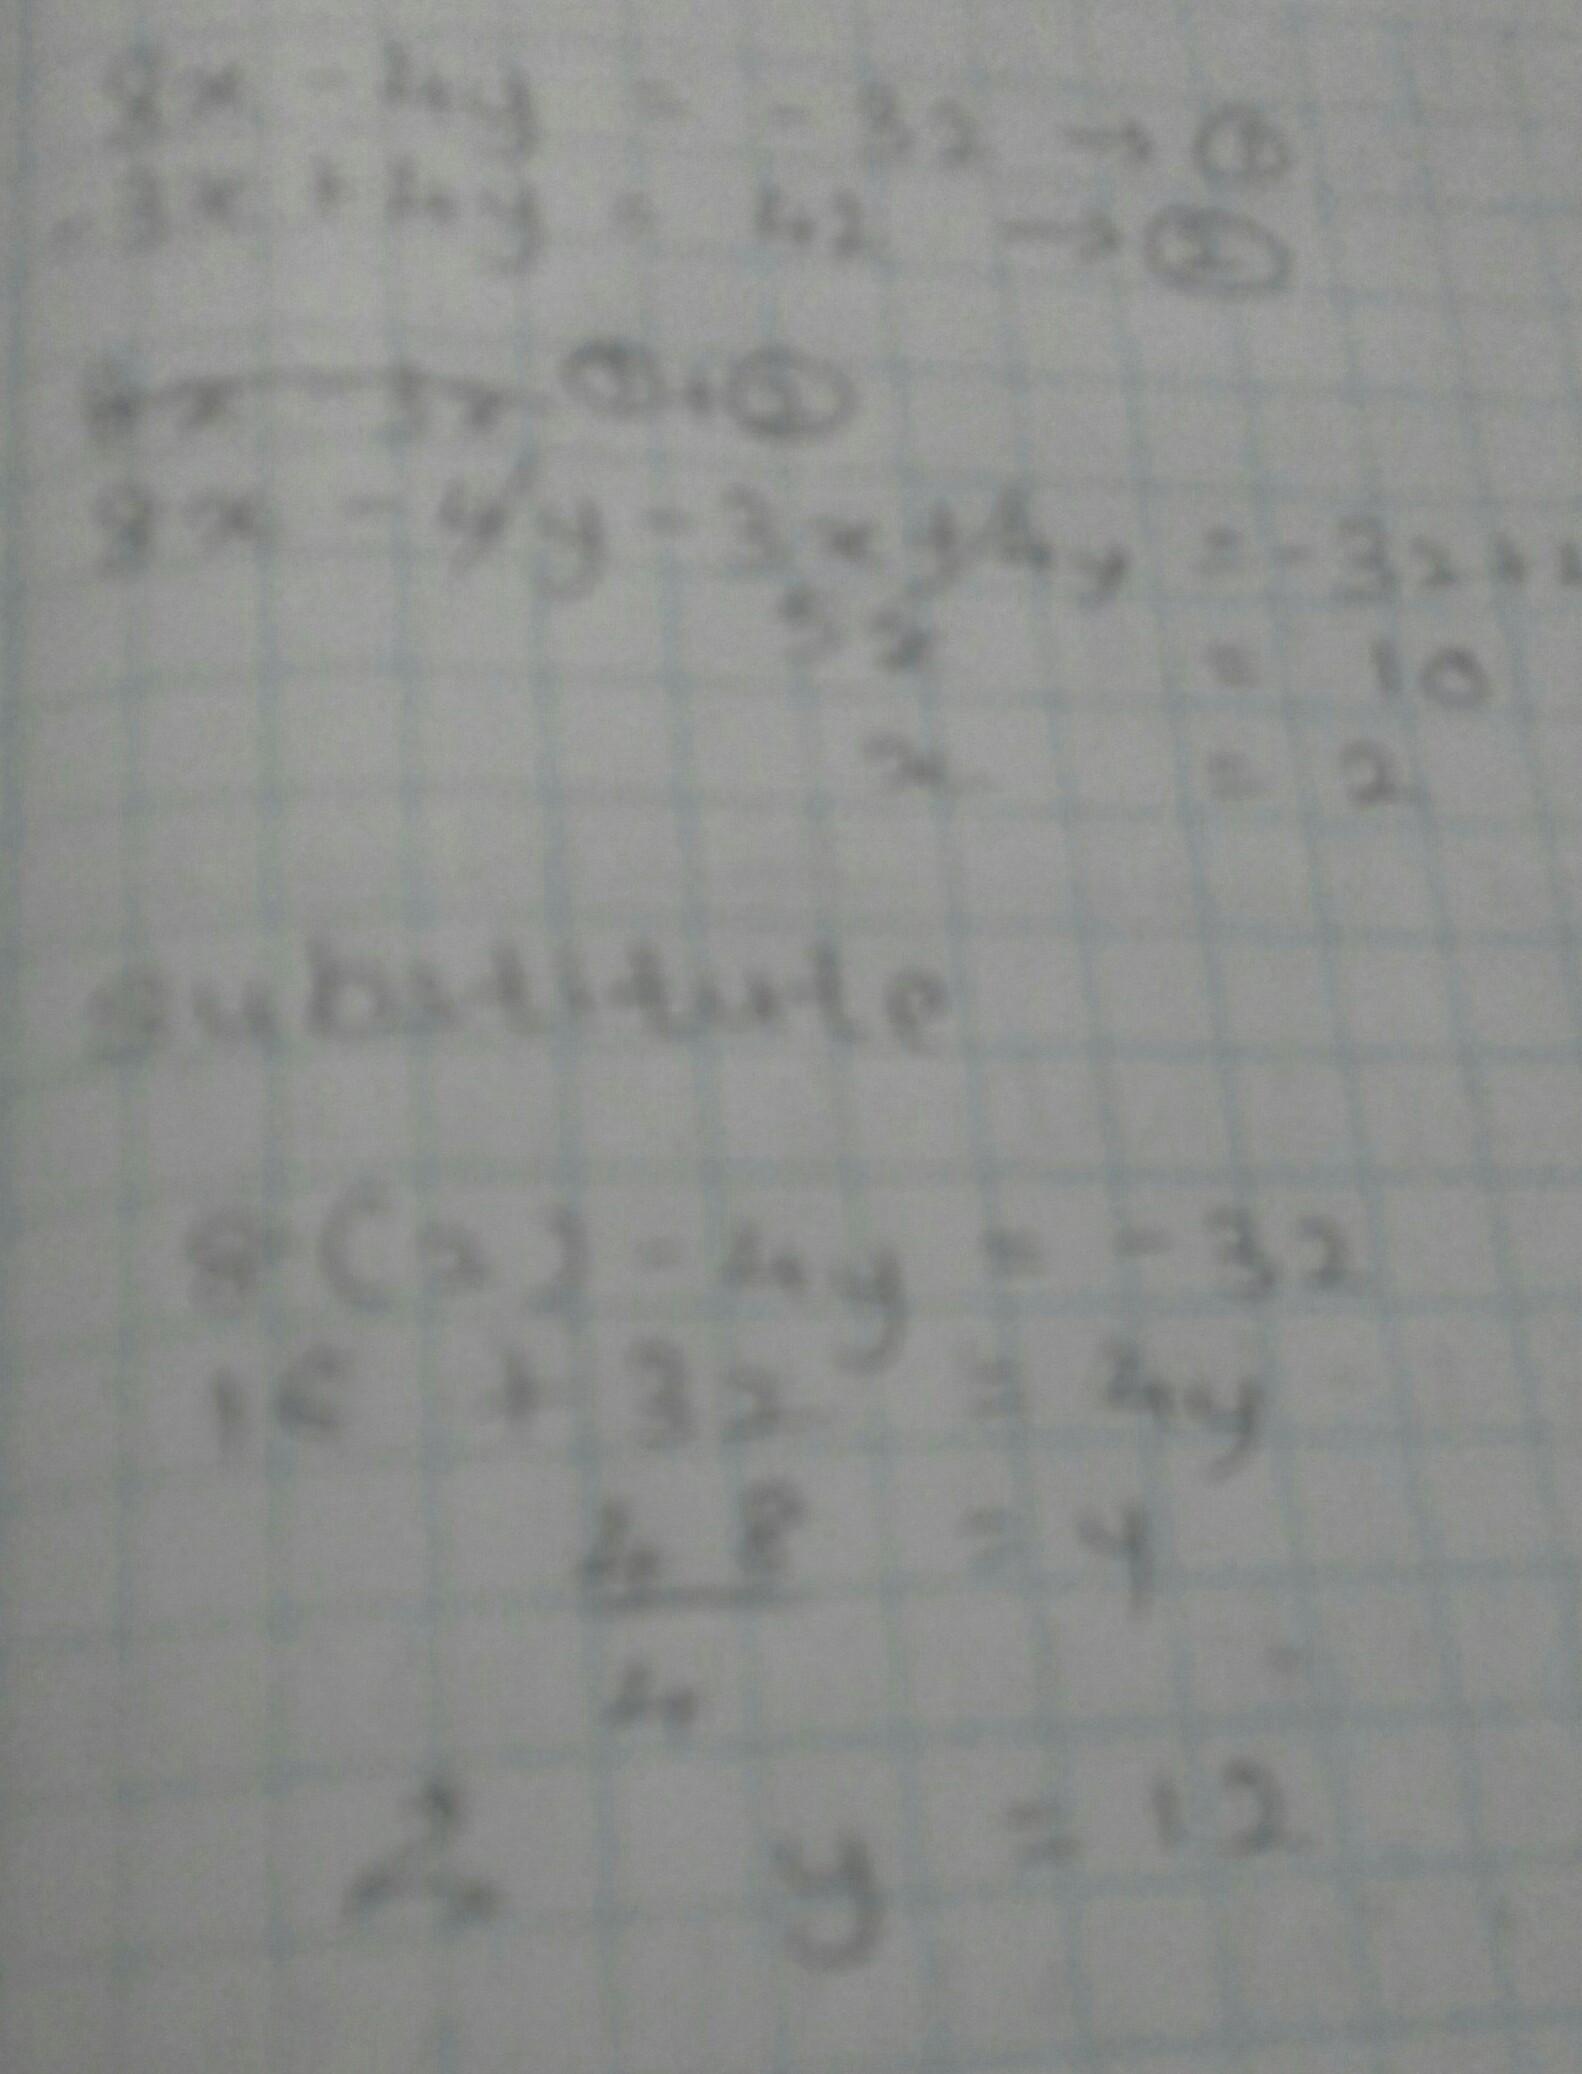 8x - 4y = - 32 → ①
- 3x + 4y = 42 → ②
①+②
8x - 4y - 3x + 4y = - 32 +
5x = 10
x = 2
substitute
8(2) - 4y = - 32
16 + 32 = 4y
48 = y
4
∴ y = 12